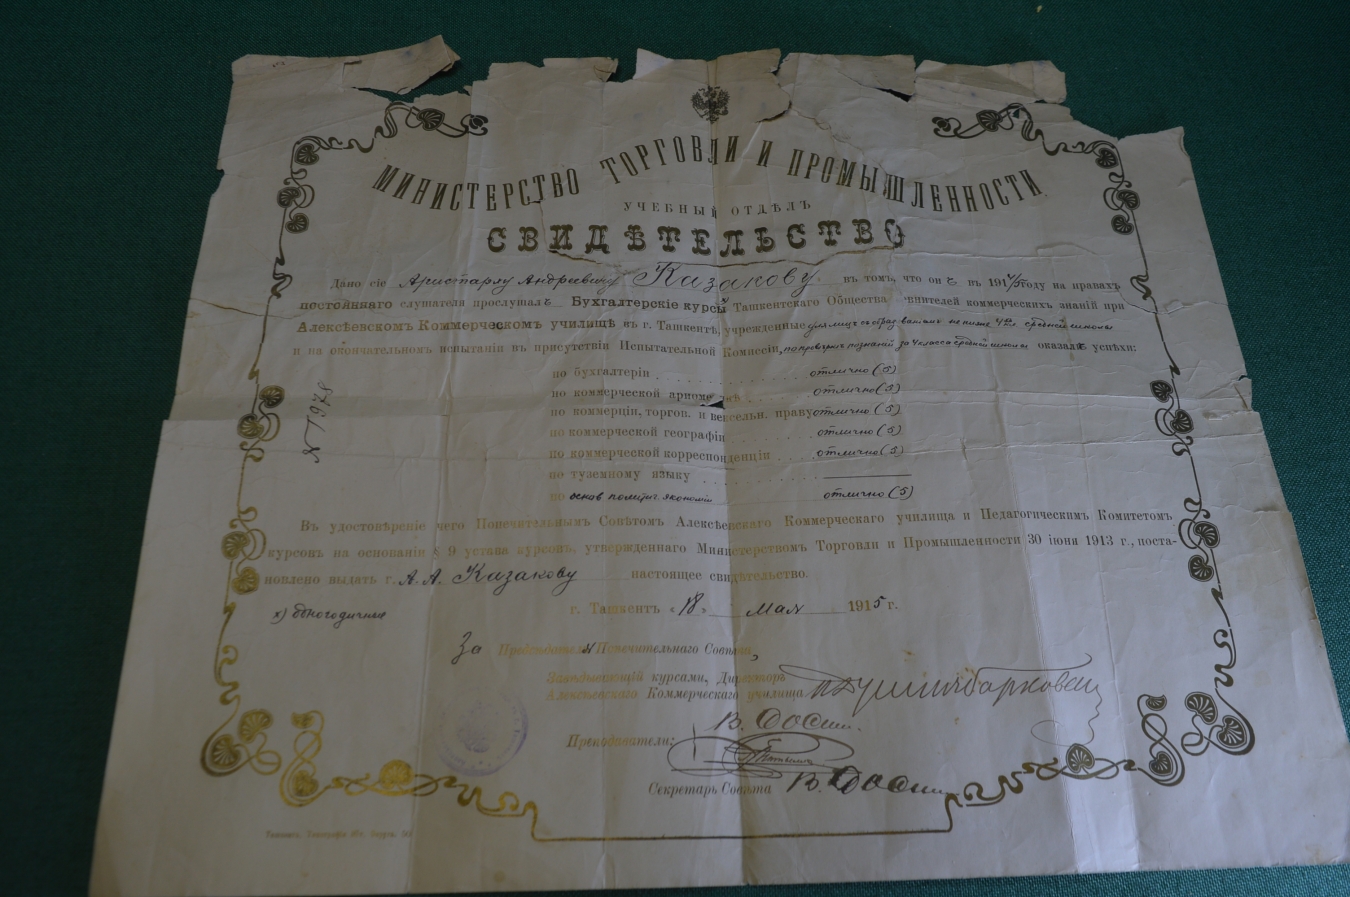 МИНИСТЕРСТВО ТОРГОВЛИ И ПРОМЫШЛЕННОСТИ
УЧЕБНЫЙ ОТДѢЛЪ
СВИДѢТЕЛЬСТВО
Дано сіе Аристарху Андреевичу Казакову въ томъ, что онъ въ 1914/5 году на правахъ
постояннаго слушателя прослушалъ Бухгалтерскіе курсы Ташкентскаго Общества ревнителей коммерческихъ знаній при
Алексѣевскомъ Коммерческомъ училищѣ въ г. Ташкентѣ, учрежденные для лицъ съ образованіемъ не ниже 4 кл. средней школы
и на окончательномъ испытаніи въ присутствіи Испытательной Комиссіи, по провѣркѣ познаній за 4 класса средней школы оказалъ успѣхи:
по бухгалтеріи отлично (5)
по коммерческой арнометикѣ отлично (5)
по коммерціи, торгов. и вексельн. праву отлично (5)
по коммерческой географіи отлично (5)
по коммерческой корреспонденціи отлично (5)
по туземному языку
по основ. политич. экономіи отлично (5)
№ 1978
Въ удостовѣреніе чего Попечительнымъ Совѣтомъ Алексѣевскаго Коммерческаго училища и Педагогическимъ Комитетомъ
курсовъ на основаніи § 9 устава курсовъ, утвержденнаго Министерствомъ Торговли и Промышленности 30 іюня 1913 г., поста-
новлено выдать г. А. А. Казакову настоящее свидѣтельство.
х) одногодичные
г. Ташкентъ «18» мая 1915 г.
За Предсѣдателя Попечительнаго Совѣта,
Завѣдывающій курсами, Директоръ
Алексѣевскаго Коммерческаго училища
Преподаватели:
Секретарь Совѣта